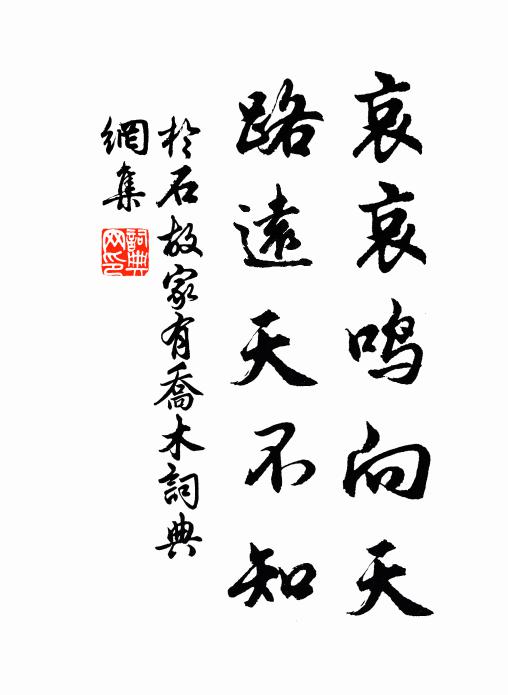 哀哀鸣向天
路遠天不知
於石故家有喬木詞典
網集
詞典
网印